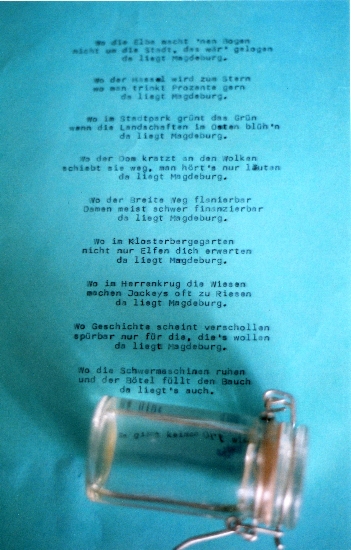 Wo die Elbe macht 'nen Bogen
nicht um die Stadt, das wär' gelogen
da liegt Magdeburg.
Wo der Hassel wird zum Stern
wo man trinkt Prozente gern
da liegt Magdeburg.
Wo im Stadtpark grünt das Grün
wenn die Landschaften im Osten blüh'n
da liegt Magdeburg.
Wo der Dom kratzt an den Wolken
schiebt sie weg, man hört's nur läuten
da liegt Magdeburg.
Wo der Breite Weg flanierbar
Damen meist schwer finanzierbar
da liegt Magdeburg.
Wo im Klosterbergegarten
nicht nur Elfen dich erwarten
da liegt Magdeburg.
Wo im Herrenkrug die Wiesen
machen Jockeys oft zu Riesen
da liegt Magdeburg.
Wo Geschichte scheint verschollen
spürbar nur für die, die's wollen
da liegt Magdeburg.
Wo die Schwermaschinen ruhen
und der Bötel füllt den Bauch
da liegt's auch.
gibt keinen Ort